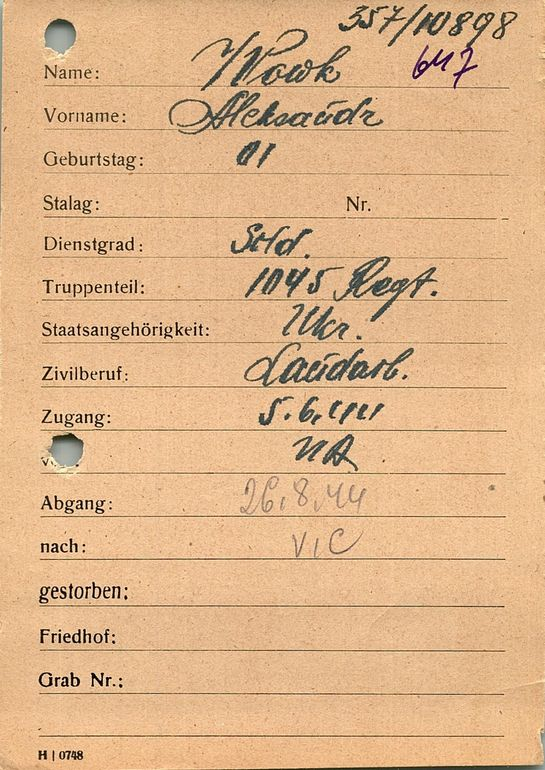 357/10898
Name: Wowk 647
Vorname: Aleksandr
Geburtstag: 01
Stalag: Nr.
Dienstgrad: Sold.
Truppenteil: 1045 Regt.
Staatsangehörigkeit: Ukr.
Zivilberuf: Landarb.
Zugang: 5.6.44
VI A
Abgang: 26.8.44
nach: VI C
gestorben:
Friedhof:
Grab Nr.:
H | 0748